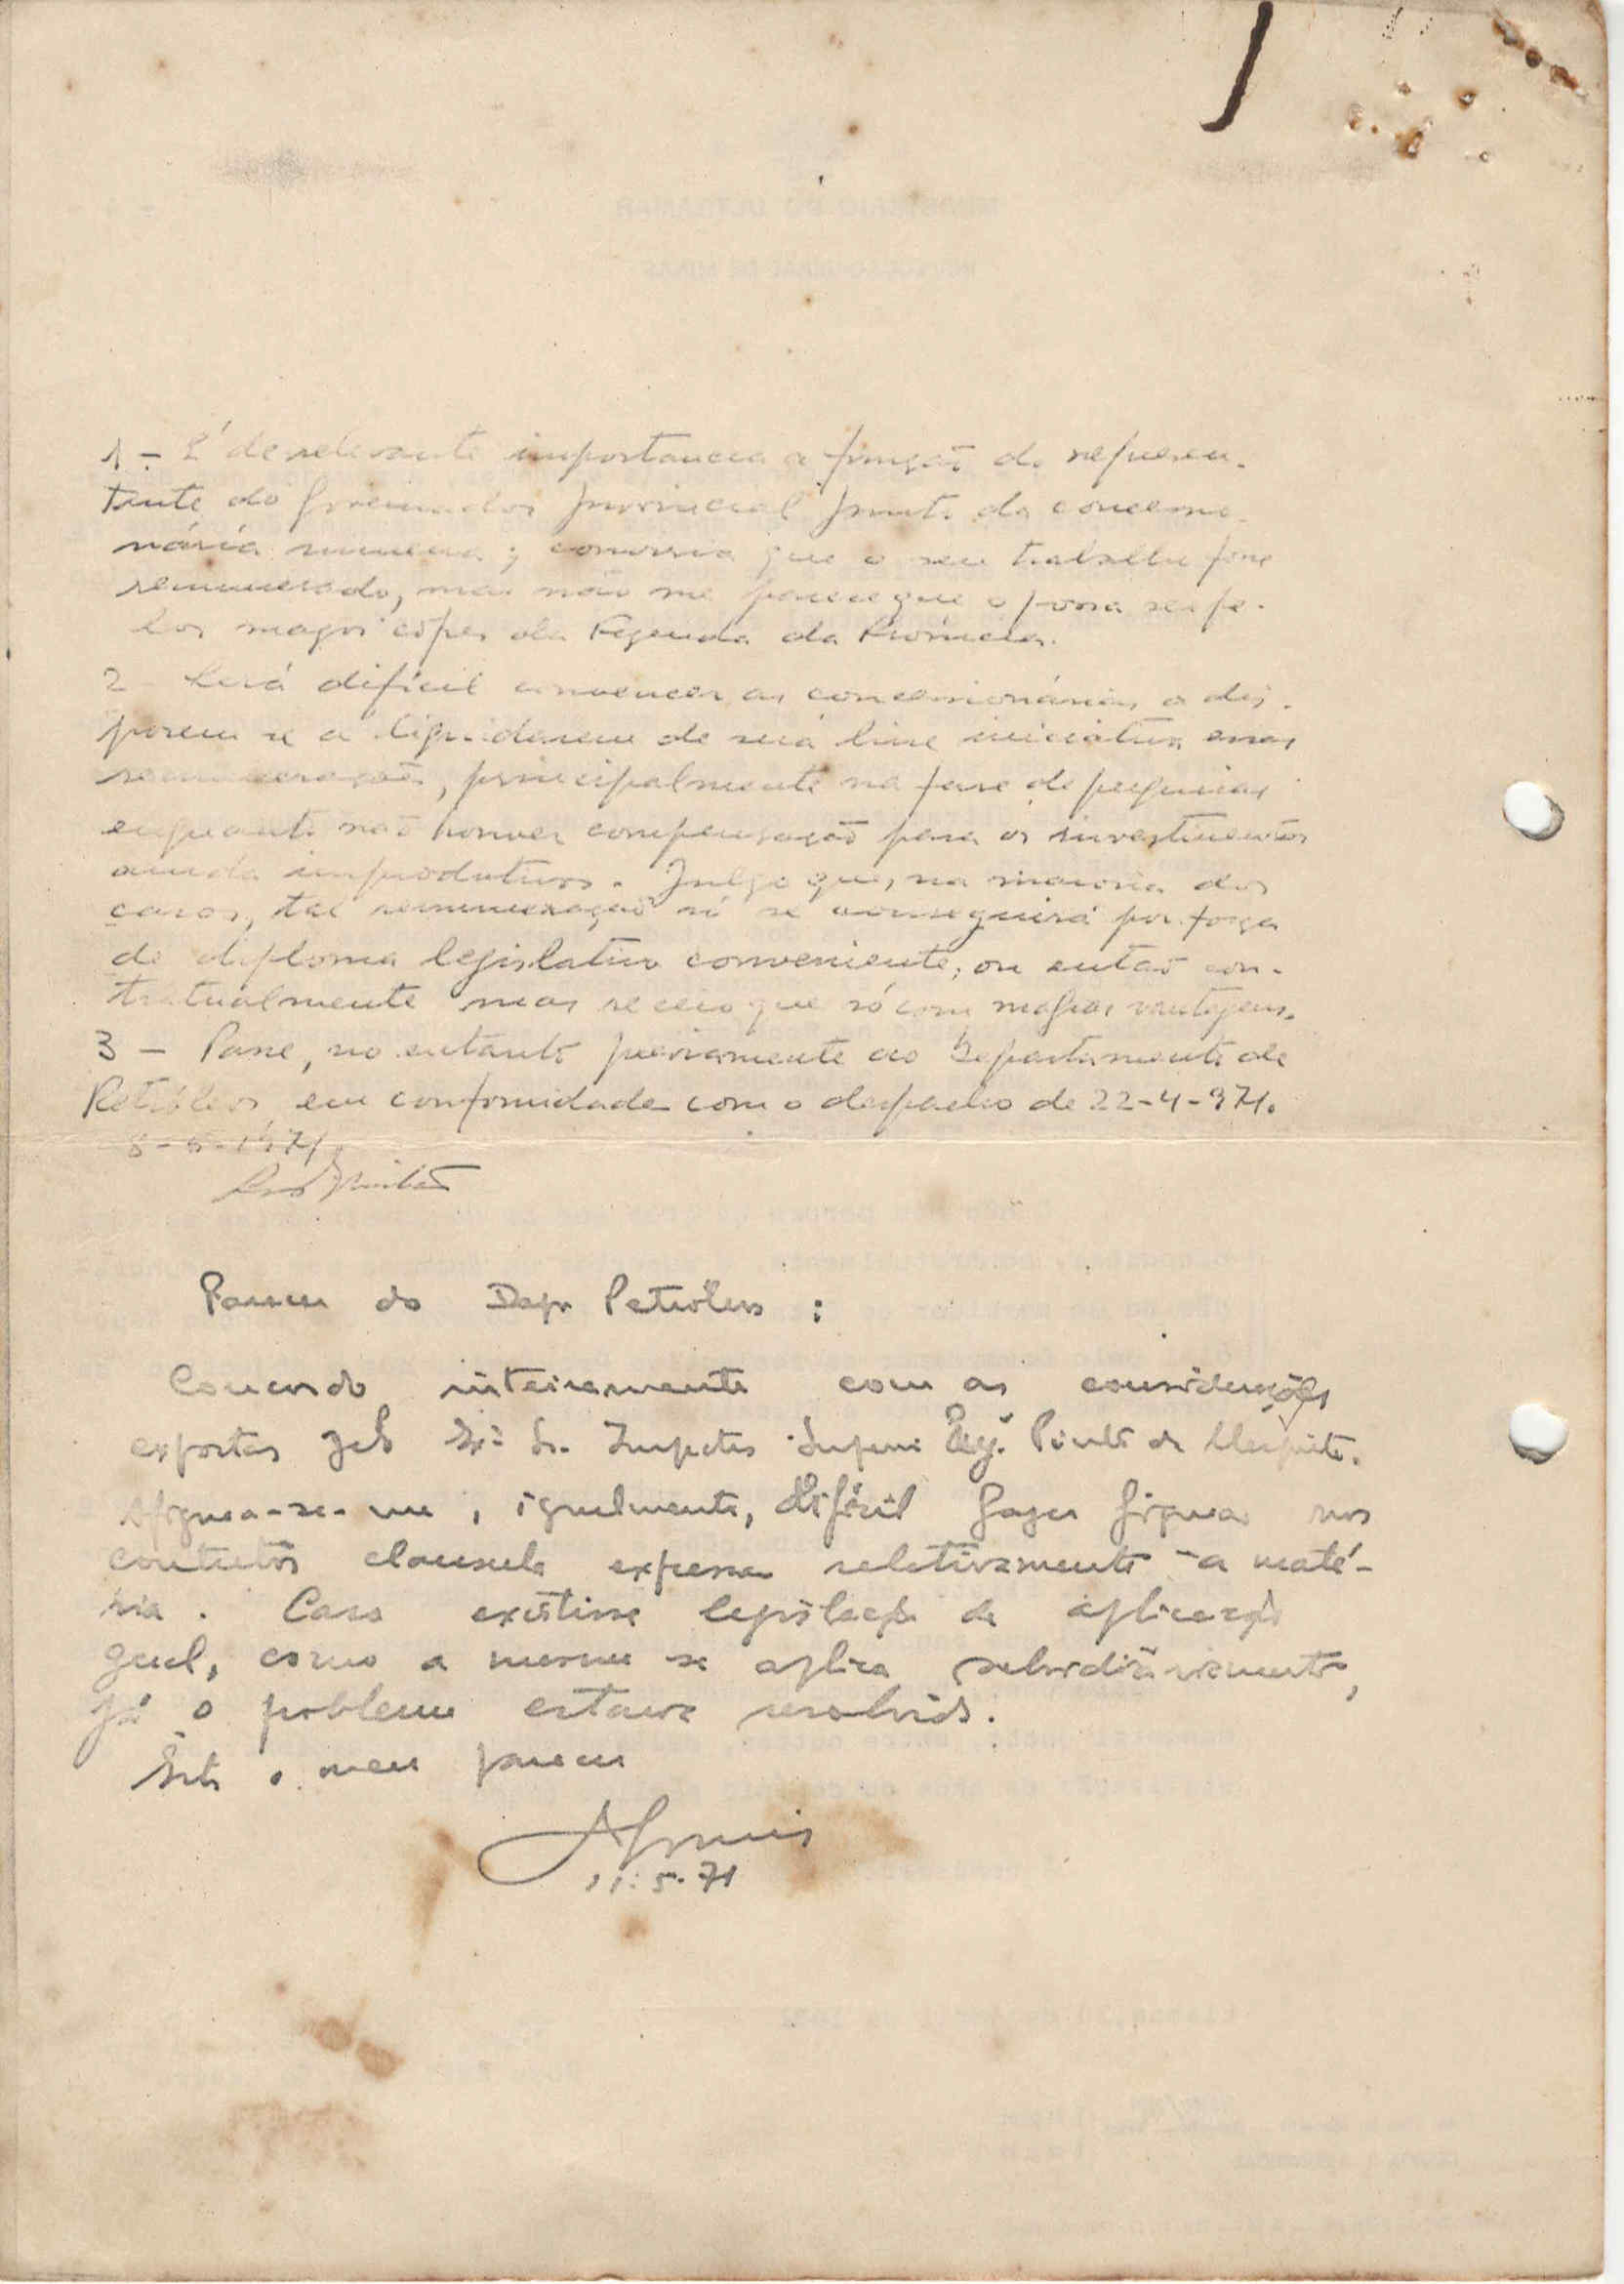 1 - É de relevante importancia a função do represen-
tante do Governador Provincial junto da concessio-
nária mineira; conviria que o seu trabalho fosse
remunerado, mas não me parece que o possa ser pe-
los magros cofres da Fazenda da Província.
2 - Será difícil convencer as concessionárias a dis-
porem-se a liquidarem de sua livre iniciativa essas
remunerações, principalmente na fase de pesquisas
enquanto não houver compensação para os investimentos
ainda improdutivos. Julgo que, na maioria dos
casos, tal remuneração só se conseguirá por força
de diploma legislativo conveniente, ou então con-
tratualmente mas receio que só com magras vantagens.
3 - Passe, no entanto previamente ao Departamento de
Petróleos em conformidade com o despacho de 22-4-971.
8-5-1971
Parecer do Dep. Petróleos :
Concordo inteiramente com as considerações
expostas pelo Exº Sr. Inspector Superior Engº. Pinto de
Afigura-se-me, igualmente, difícil fazer figurar nos
contratos clausula expressa relativamente à maté-
ria. Caso existisse legislação de aplicação
geral, como a mesma se aplica subsidiàriamente,
já o problema estava resolvido.
Este o meu parecer
11.5.71